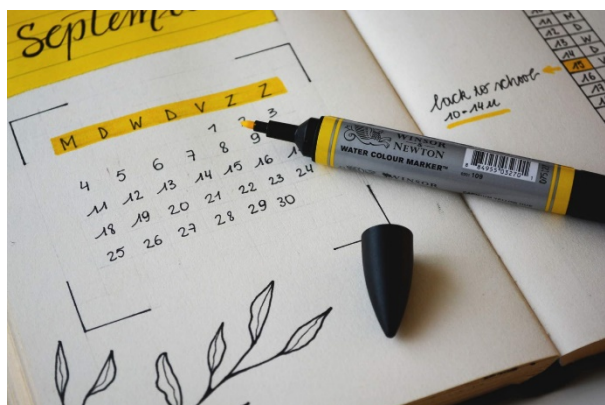 Septem
M D W D V Z Z
1 2 3
4 5 6 7 8 9
11 12 13 14 15 16
18 19 20 21 22 23 24
25 26 27 28 29 30
WINSOR
& NEWTON
WATER COLOUR MARKER™
back to school
10-14u
11 M
12 D
13 W
14 D
15
16
17